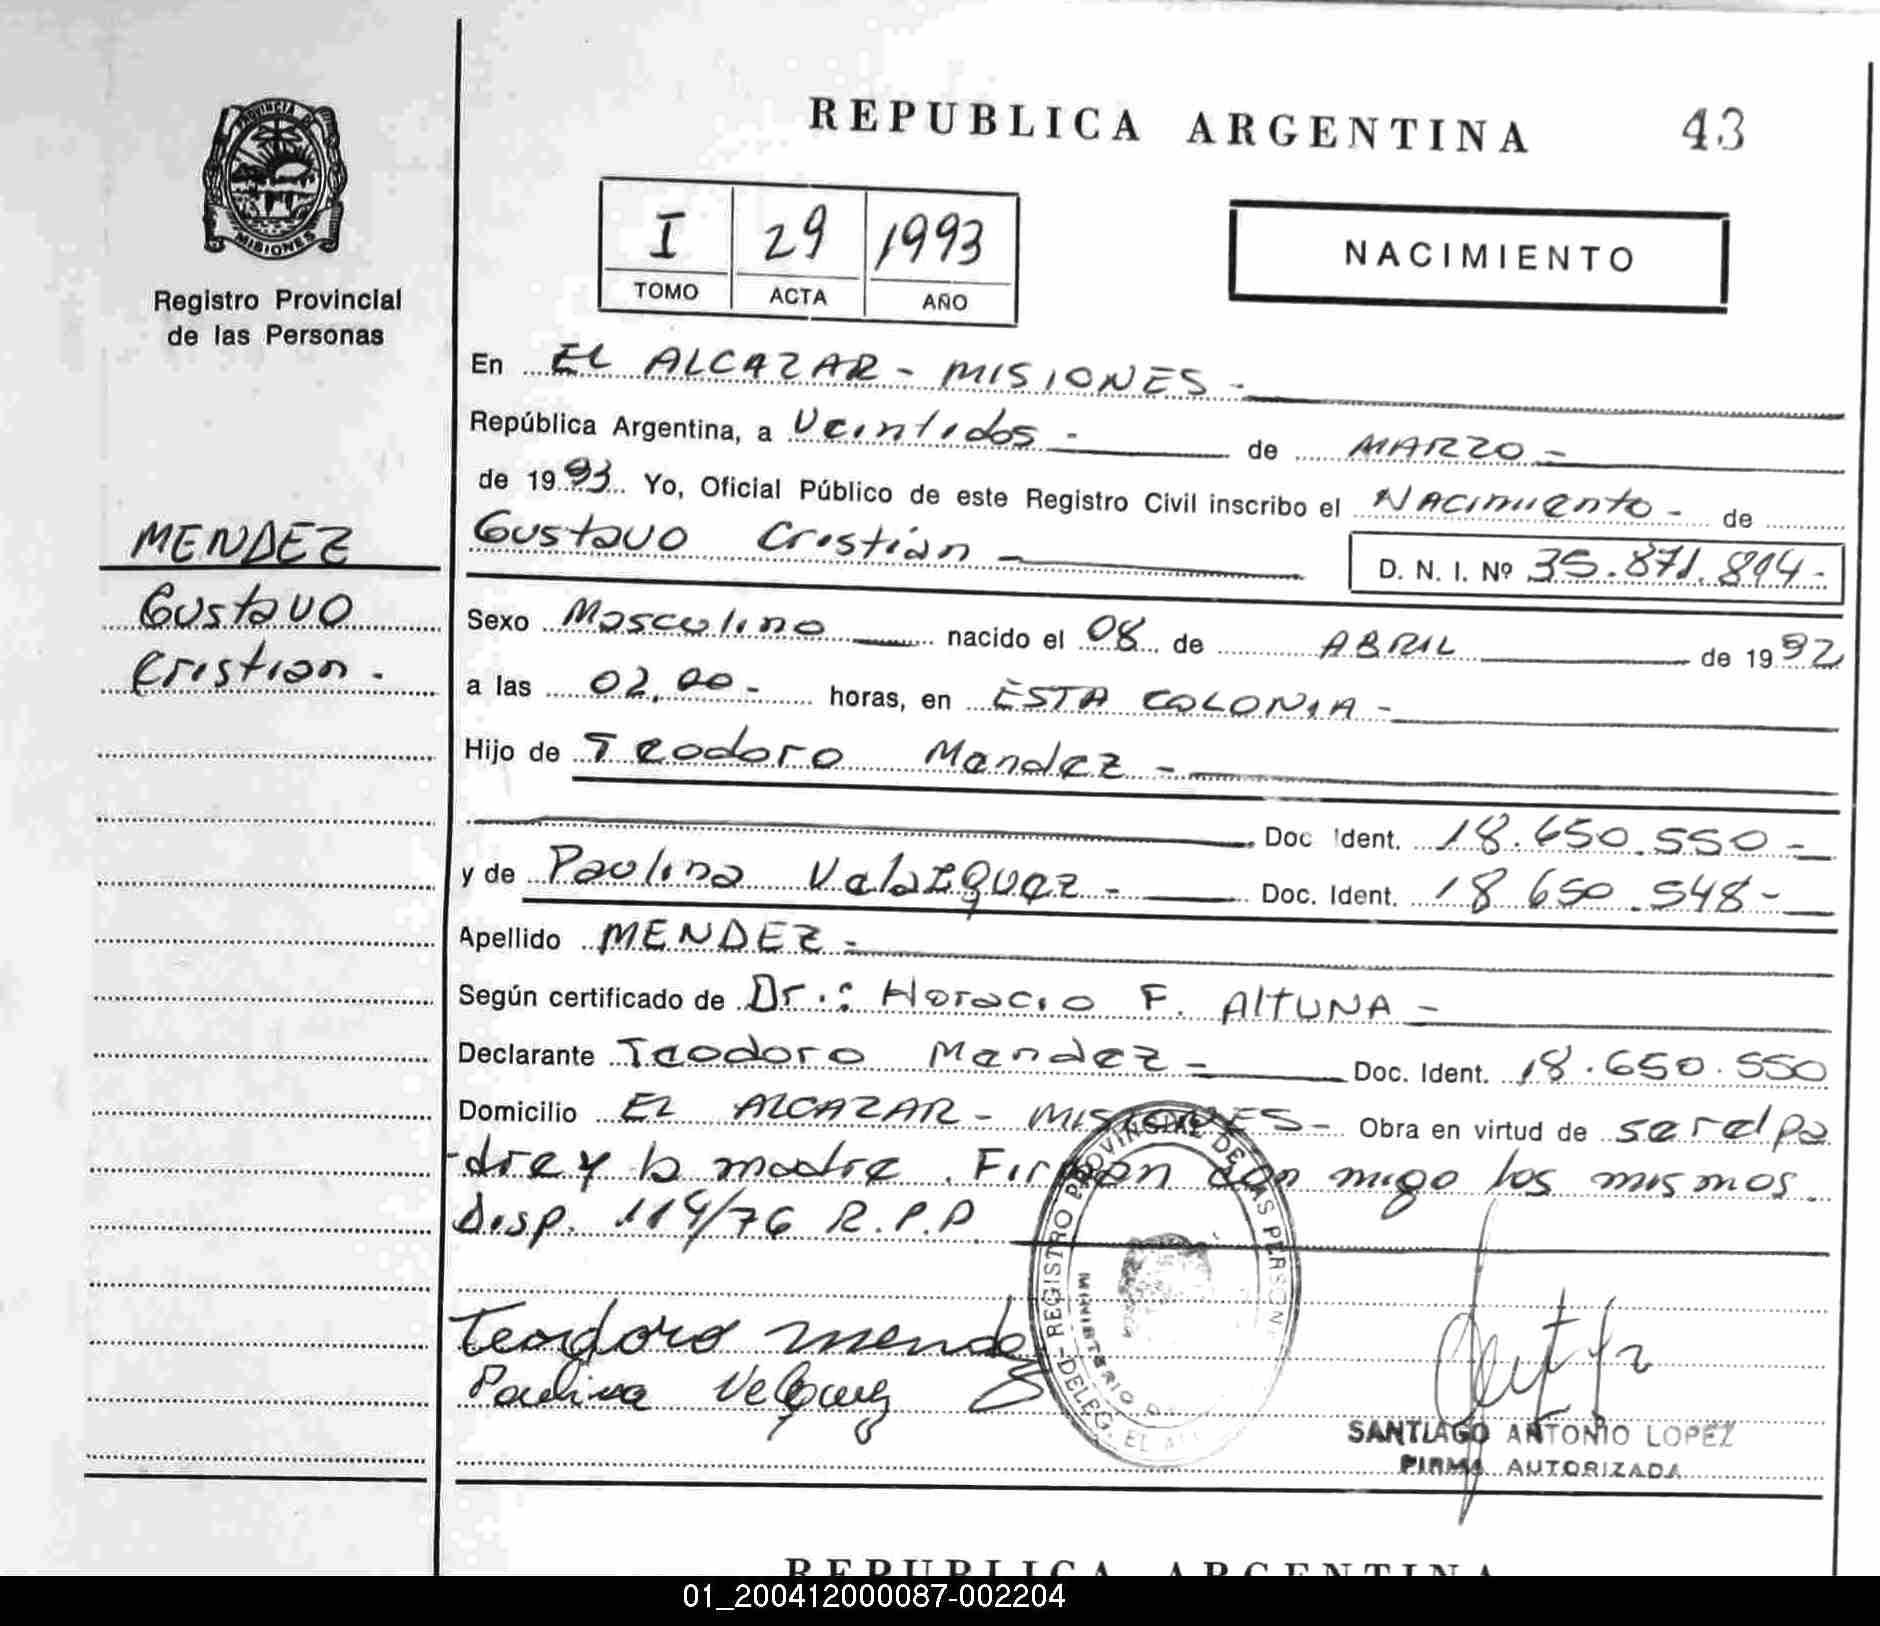 PROVINCIA DE
MISIONES
Registro Provincial
de las Personas
MENDEZ
Gustavo
Cristian.
REPUBLICA ARGENTINA 43
I 29 1993
TOMO ACTA AÑO
NACIMIENTO
En EL ALCAZAR - MISIONES -
República Argentina, a Veintidos - de MARZO -
de 1993 Yo, Oficial Público de este Registro Civil inscribo el Nacimiento - de
Gustavo Cristian - D. N. I. Nº 35.871.814-
Sexo Masculino nacido el 08 de ABRIL de 1992
a las 02,00 - horas, en ESTA COLONIA -
Hijo de Teodoro Mendez -
Doc Ident. 18.650.550 -
y de Paulina Velazquez - Doc. Ident. 18 650.548 -
Apellido MENDEZ -
Según certificado de Dr.: Horacio F. ALTUNA -
Declarante Teodoro Mendez - Doc. Ident. 18.650.550
Domicilio EL ALCAZAR - MISIONES - Obra en virtud de ser el pa
-dre y la madre. Firman con migo los mismos.
Disp. 114/76 R.P.P
Teodoro mendez
Paulina Velazquez
REGISTRO PROVINCIAL DE LAS PERSON
MINISTERIO D
DELEG. EL AL
SANTIAGO ANTONIO LOPEZ
FIRMA AUTORIZADA
REPUBLICA ARGENTINA
01_200412000087-002204